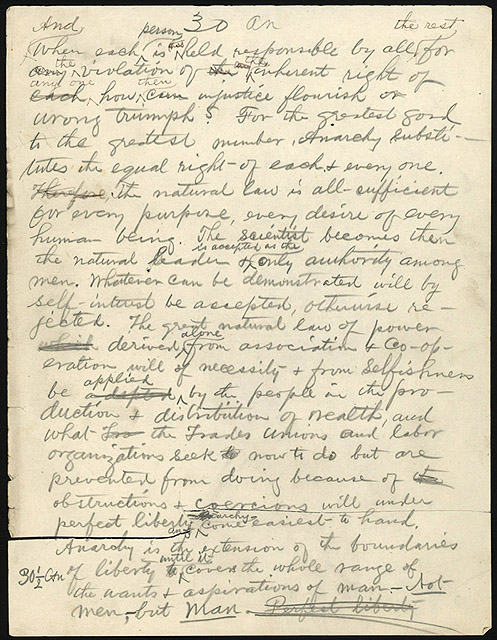 And 30 An the rest
person
When each is held responsible by all for
the
any violation of the inherent right of
and one then
each, how can injustice flourish or
wrong triumph? For the greatest good
to the greatest number, Anarchy substi-
tutes the equal right of each & every one.
Therefore, the natural law is all-sufficient
for every purpose, every desire of every
human being. The scientist becomes then
is accepted as the
the natural leader & only authority among
men. Whatever can be demonstrated will by
self-interest be accepted, otherwise re-
jected. The great natural law of power
alone
derived from association & co-op-
eration will of necessity & from selfishness
applied
be adapted by the people in the pro-
duction & distribution of wealth, and
what the Trades Unions and labor
organizations seek to now to do but are
prevented from doing because of
obstructions & coercions will under
anarchy
perfect liberty come easiest to hand.
Anarchy is the extension of the boundaries
until it
30½ An of liberty covers the whole range of
the wants & aspirations of man - Not
men, but Man. Perfect liberty